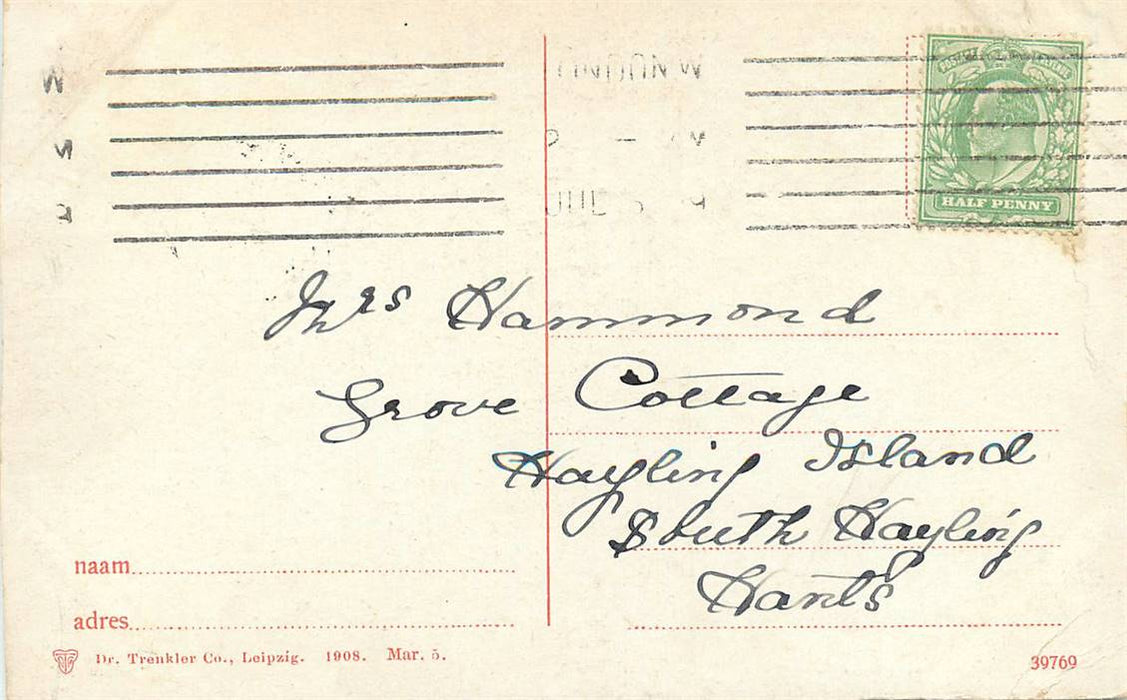 HALF PENNY
Mrs Hammond
Grove Cottage
Hayling Island
South Hayling
Hants
naam
adres
Dr. Trenkler Co., Leipzig. 1908. Mar. 5.
39769